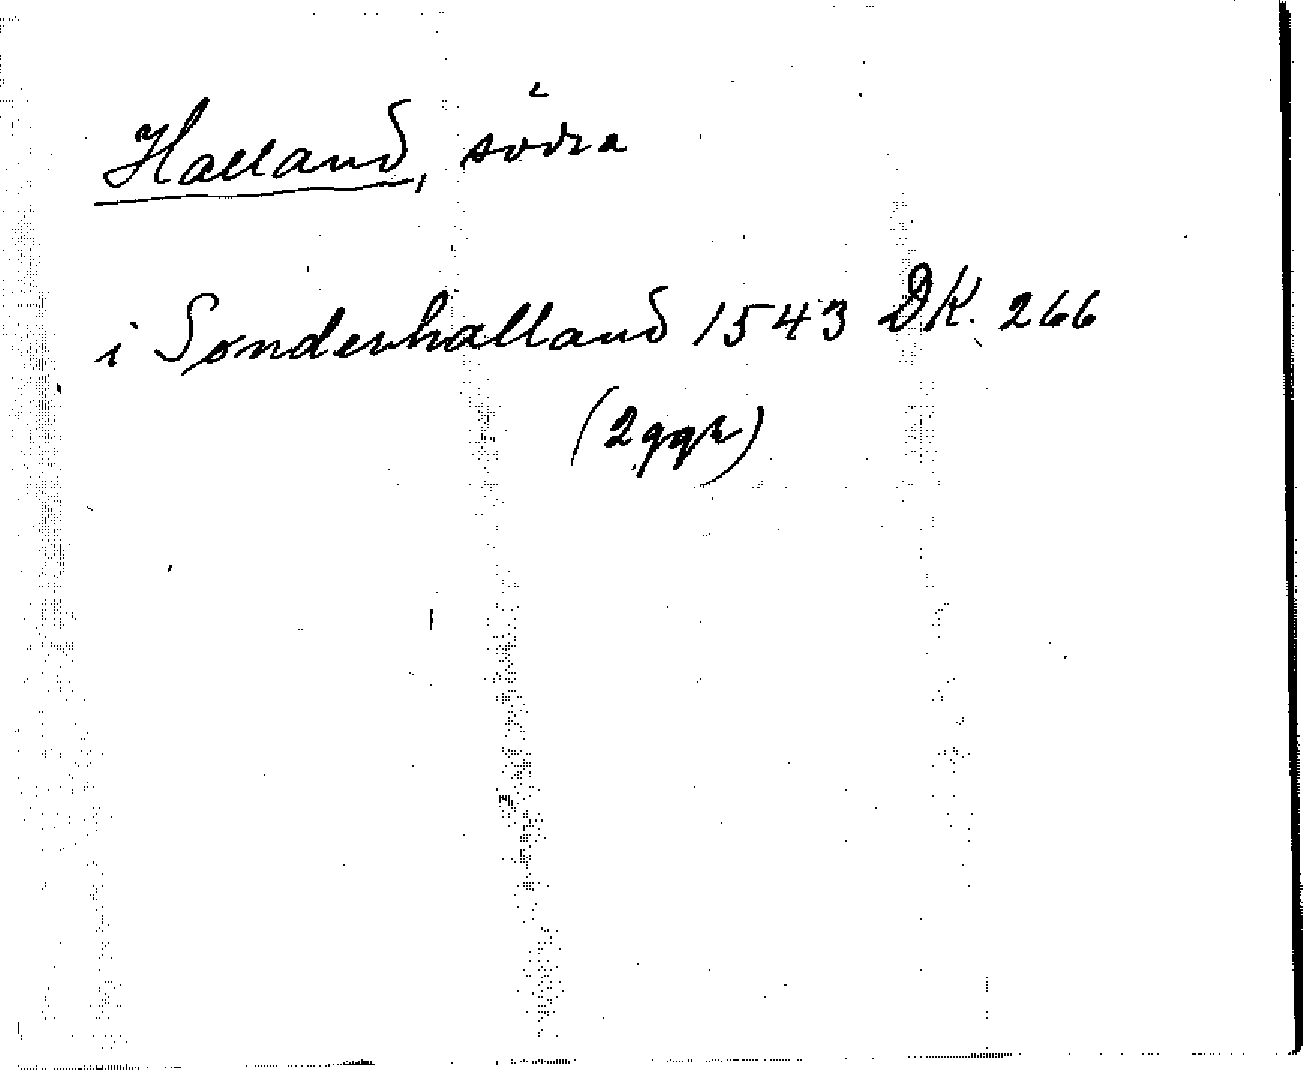 Halland, södra
i Sønderhalland 1543 DK. 266
(2 ggr)